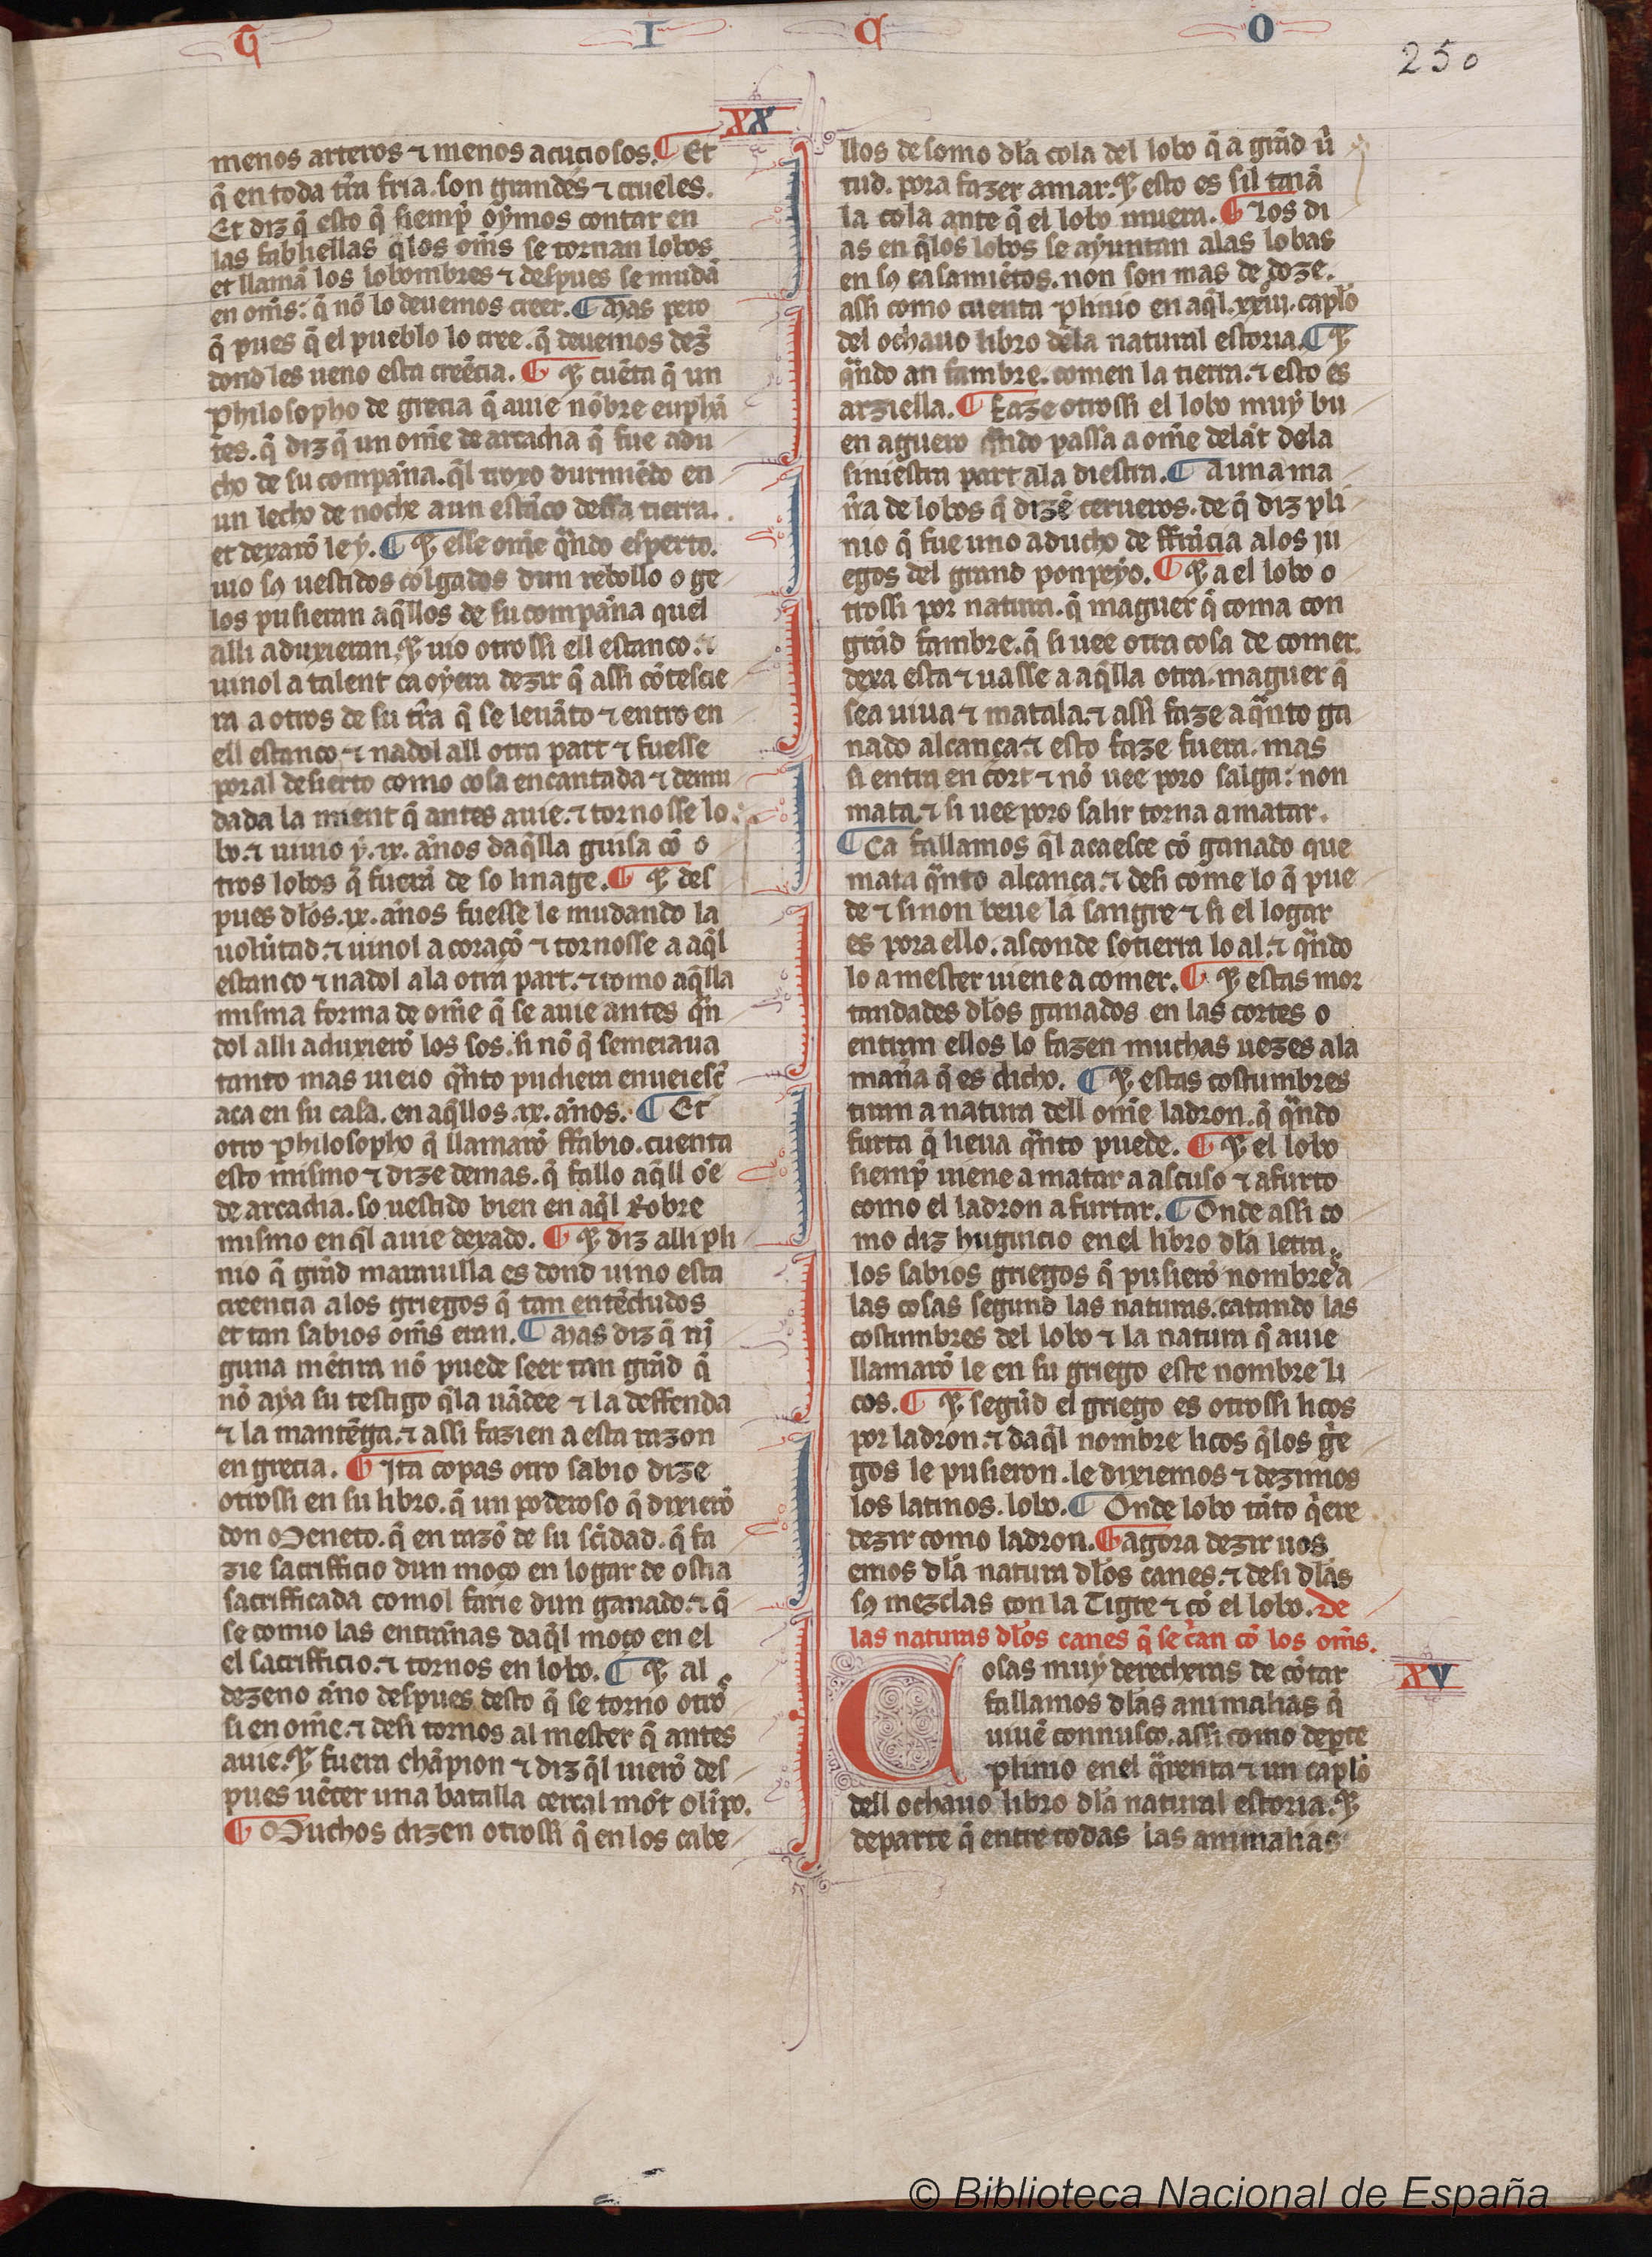 G I C O
250
XX
menos arteros ⁊ menos acuciosos. ¶ Et
q̃ en toda tr̃ra fria. son grandes ⁊ crueles.
Et diz q̃ esto q̃ siemp̃ oýmos contar en
las fabliellas q̃ los om̃s se tornan lobos
et llamã los lobombres ⁊ despues se mudã
en om̃s: q̃ nõ lo deuemos creer. ¶ Mas pero
q̃ pues q̃ el pueblo lo cree. q̃ deuemos dez̃
dond les ueno esta creẽcia. ¶ ⁊ cuẽta q̃ un
philosopho de grecia q̃ auie nõbre euphã
tes. q̃ diz q̃ un om̃e de arcadia q̃ fue adu
cho de su compãna. q̃l troxo durmiẽdo en
un lecho de noche a un estãco dessa tierra.
et dexarõ le ý. ¶ ⁊ esse om̃e q̃ndo esperto.
uio sꝯ uestidos colgados dun rebollo o ge
los pusieran aq̃llos de su compãna quel
alli aduxieran. ⁊ uio otrossi ell estanco. ⁊
uinol a talent ca oýera dezir q̃ assi cõtescie
ra a otros de su tr̃ra q̃ se leuãto ⁊ entro en
ell estanco ⁊ nadol all otra part ⁊ fuesse
poral desierto como cosa encantada ⁊ demu
dada la mient q̃ antes auie. ⁊ tornosse lo
bo. ⁊ uiuio ý .ix. ãnos daq̃lla guisa cõ o
tros lobos q̃ fuerã de so linage. ¶ ⁊ des
pues dlos .ix. ãnos fuesse le mudando la
uolũtad. ⁊ uinol a coraçõ ⁊ tornosse a aq̃l
estanco ⁊ nadol a la otra part. ⁊ tomo aq̃lla
misma forma de om̃e q̃ se auie antes q̃n
dol alli aduxierõ los sos. si nõ q̃ semeiaua
tanto mas uieio q̃nto pudiera enueiesc̃
aca en su casa. en aq̃llos .ix. ãnos. ¶ Et
otro philosopho q̃ llamarõ ffabio. cuenta
esto mismo ⁊ dize demas. q̃ fallo aq̃ll om̃e
de arcadia. so uestido bien en aq̃l Robre
mismo en q̃l auie dexado. ¶ ⁊ diz alli pli
nio q̃ grãd marauilla es dond uino esta
creencia a los griegos q̃ tan entẽdudos
et tan sabios om̃s eran. ¶ Mas diz q̃ nĩ
guna mẽtira nõ puede seer tan grãd q̃
nõ aýa su testigo q̃la uãdee ⁊ la deffenda
⁊ la mantẽga. ⁊ assi fazien a esta razon
en grecia. ¶ Ita copas otro sabio dize
otrossi en su libro. q̃ un poderoso q̃ dixierõ
don Meneto. q̃ en razõ de su sc̃idad. q̃ fa
zie sacrifficio dun moço en logar de ostia
sacrifficada comol farie dun ganado. ⁊ q̃
se comio las entrãnas daq̃l moço en el
el sacrifficio. ⁊ tornos en lobo. ¶ ⁊ al
dezeno ãno despues desto q̃ se torno otro
si en om̃e. ⁊ desi tornos al mester q̃ antes
auie. ⁊ fuera chãpion ⁊ diz q̃l uierõ des
pues uẽcer una batalla cercal mõt olipo.
¶ Muchos dizen otrossi q̃ en los cabe
llos de somo dla cola del lobo q̃ a grãd uir
tud. pora fazer amar. ⁊ esto es sil taiã
la cola ante q̃ el lobo muera. ¶ Los di
as en q̃ los lobos se aýuntan a las lobas
en sꝯ casamiẽtos. non son mas de doze.
assi como cuenta plinio en aq̃l .xxiiij. caplo
del ochauo libro dela natural estoria. ¶ ⁊
q̃ndo an fambre. comen la tierra. ⁊ esto es
arziella. ¶ Faze otrossi el lobo muý bu
en aguero q̃ndo passa a om̃e delãt dela
siniestra part a la diestra. ¶ A una ma
ñra de lobos q̃ dizẽ cerueros. de q̃ diz pli
nio q̃ fue uno aducho de ffrãcia a los iu
egos del grand ponpeýo. ¶ ⁊ a el lobo o
trossi por natura. q̃ maguer q̃ coma con
grãd fambre. q̃ si uee otra cosa de comer
dexa esta ⁊ uasse a aq̃lla otra. maguer q̃
sea uiua ⁊ matala. ⁊ assi faze a q̃nto ga
nado alcança. ⁊ esto faze fuera. mas
si entra en cort ⁊ nõ uee poro salga: non
mata. ⁊ si uee poro salir torna a matar.
¶ Ca fallamos q̃l acaesce cõ ganado que
mata q̃nto alcança. ⁊ desi come lo q̃ pue
de ⁊ sinon beue la sangre ⁊ si el logar
es pora ello. asconde sotierra lo al. ⁊ q̃ndo
lo a mester uiene a comer. ¶ ⁊ estas mor
tandades dlos ganados en las cortes o
entran ellos lo fazen muchas uezes a la
mañra q̃ es dicho. ¶ ⁊ estas costumbres
tiran a natura dell om̃e ladron. q̃ q̃ndo
furta q̃ lieua q̃nto puede. ¶ ⁊ el lobo
siemp̃ uiene a matar a ascuso ⁊ a furto
como el ladron a furtar. ¶ Onde assi co
mo diz huguicio en el libro dla letra.
los sabios griegos q̃ pusierõ nombres a
las cosas segund las naturas. catando las
costumbres del lobo ⁊ la natura q̃ auie
llamarõ le en su griego este nombre li
cos. ¶ ⁊ segũd el griego es otrossi licos
por ladron. ⁊ daq̃l nombre licos q̃ los g̃e
gos le pusieron. le dixiemos ⁊ dezimos
los latinos. lobo. ¶ Onde lobo tãto q̃ere
dezir como ladron. ¶ agora dezir uos
emos dla natura dlos canes. ⁊ desi dlas
sꝯ mezclas con la Tigre ⁊ cõ el lobo. De
las naturas dlos canes q̃ se c̃an cõ los om̃s.
XV
Cosas muý derecheras de cõtar
fallamos dlas animalias q̃
uiuẽ connusco. assi como dep̃te
plinio en el q̃renta ⁊ un caplo
dell ochauo libro dla natural estoria. ⁊
departe q̃ entre todas las animalias
© Biblioteca Nacional de España